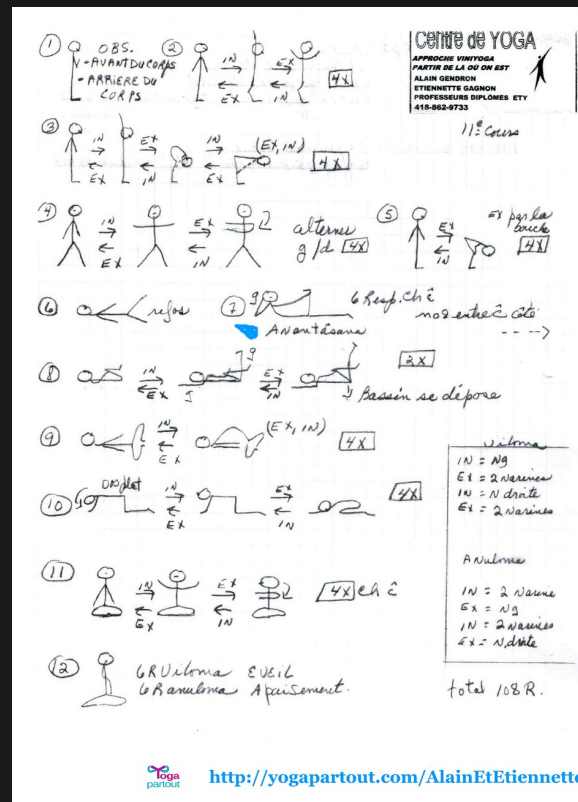 Centre de YOGA
APPROCHE VINIYOGA
PARTIR DE LÀ OÙ ON EST
ALAIN GENDRON
ETIENNETTE GAGNON
PROFESSEURS DIPLÔMES ETY
418-862-9733
11e Cours
1 OBS.
- AVANT DU CORPS
- ARRIERE DU
CORPS
2 IN EX
EX IN 4X
3 IN EX IN (EX, IN)
EX IN EX 4X
4 IN EX alternes
EX IN g/d 4X
5 EX par la
bouche
EX
IN 4X
6 repos
7 g 6 Resp. Ch ĉ
nos entre ĉ côté
Anantâsana
--->
8 IN g EX 2X
EX IN
Bassin se dépose
9 IN (EX, IN) 4X
EX
10 Dos plat IN EX 4X
EX IN
11 IN EX 4X ch ĉ
EX IN
12 6R Viloma EVEIL
6R anuloma Apaisement.
Viloma
IN = Ng
EX = 2 Narines
IN = N droite
EX = 2 Narines
Anuloma
IN = 2 Narine
EX = Ng
IN = 2 Narines
EX = N. droite
total 108 R.
Yoga
partout
http://yogapartout.com/AlainEtEtiennette